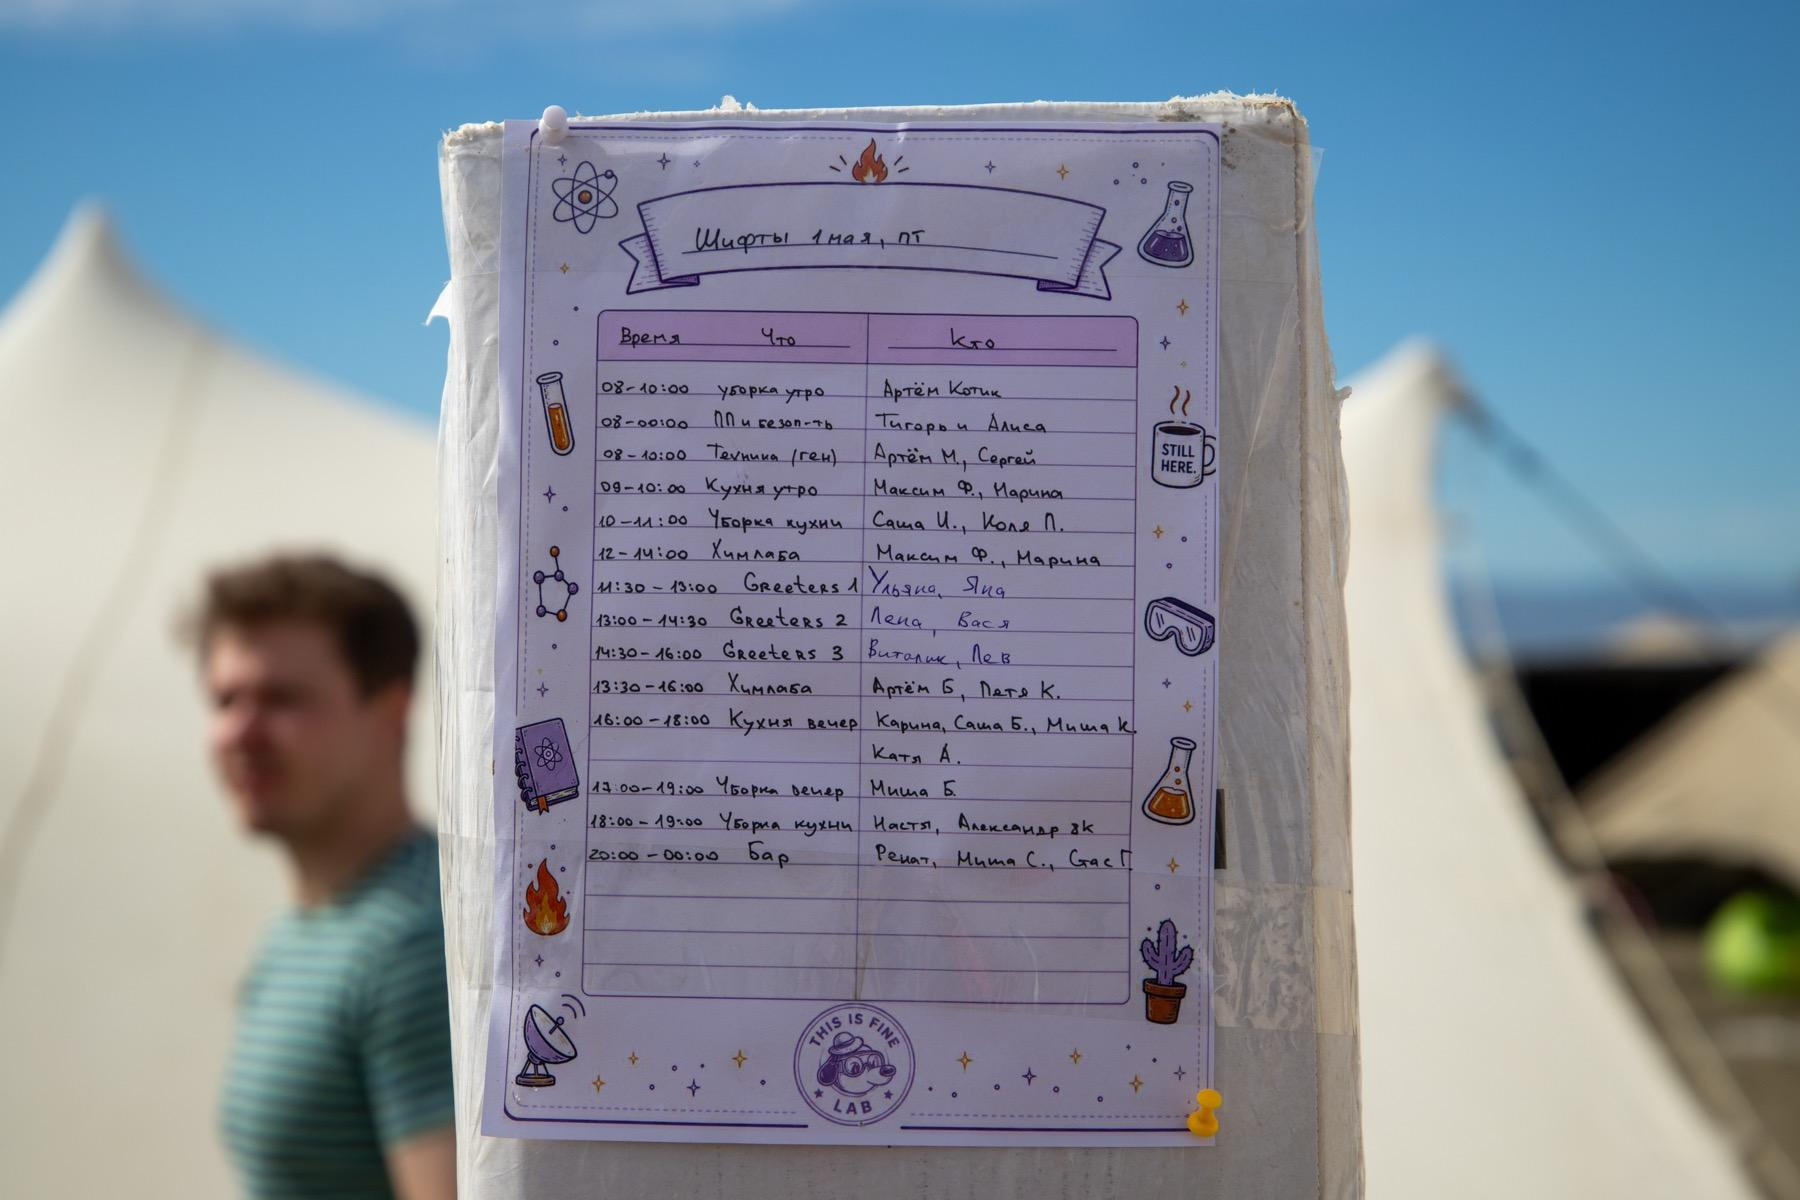 Шифты 1 мая, пт
Время Что Кто
08-10:00 уборка утро Артём Котик
08-00:00 ПП и безоп-ть Тигорь и Алиса
08-10:00 Техника (ген) Артём М., Сергей
09-10:00 Кухня утро Максим Ф., Марина
10-11:00 Уборка кухни Саша И., Коля П.
12-14:00 Химлаба Максим Ф., Марина
11:30-13:00 Greeters 1 Ульяна, Яна
13:00-14:30 Greeters 2 Лена, Вася
14:30-16:00 Greeters 3 Виталик, Лев
13:30-16:00 Химлаба Артём Б, Петя К.
16:00-18:00 Кухня вечер Карина, Саша Б., Миша К.
Катя А.
17:00-19:00 Уборка вечер Миша Б.
18:00-19:00 Уборка кухни Настя, Александр ЗК
20:00-00:00 Бар Ренат, Миша С., Стас Г
STILL
HERE.
THIS IS FINE
LAB